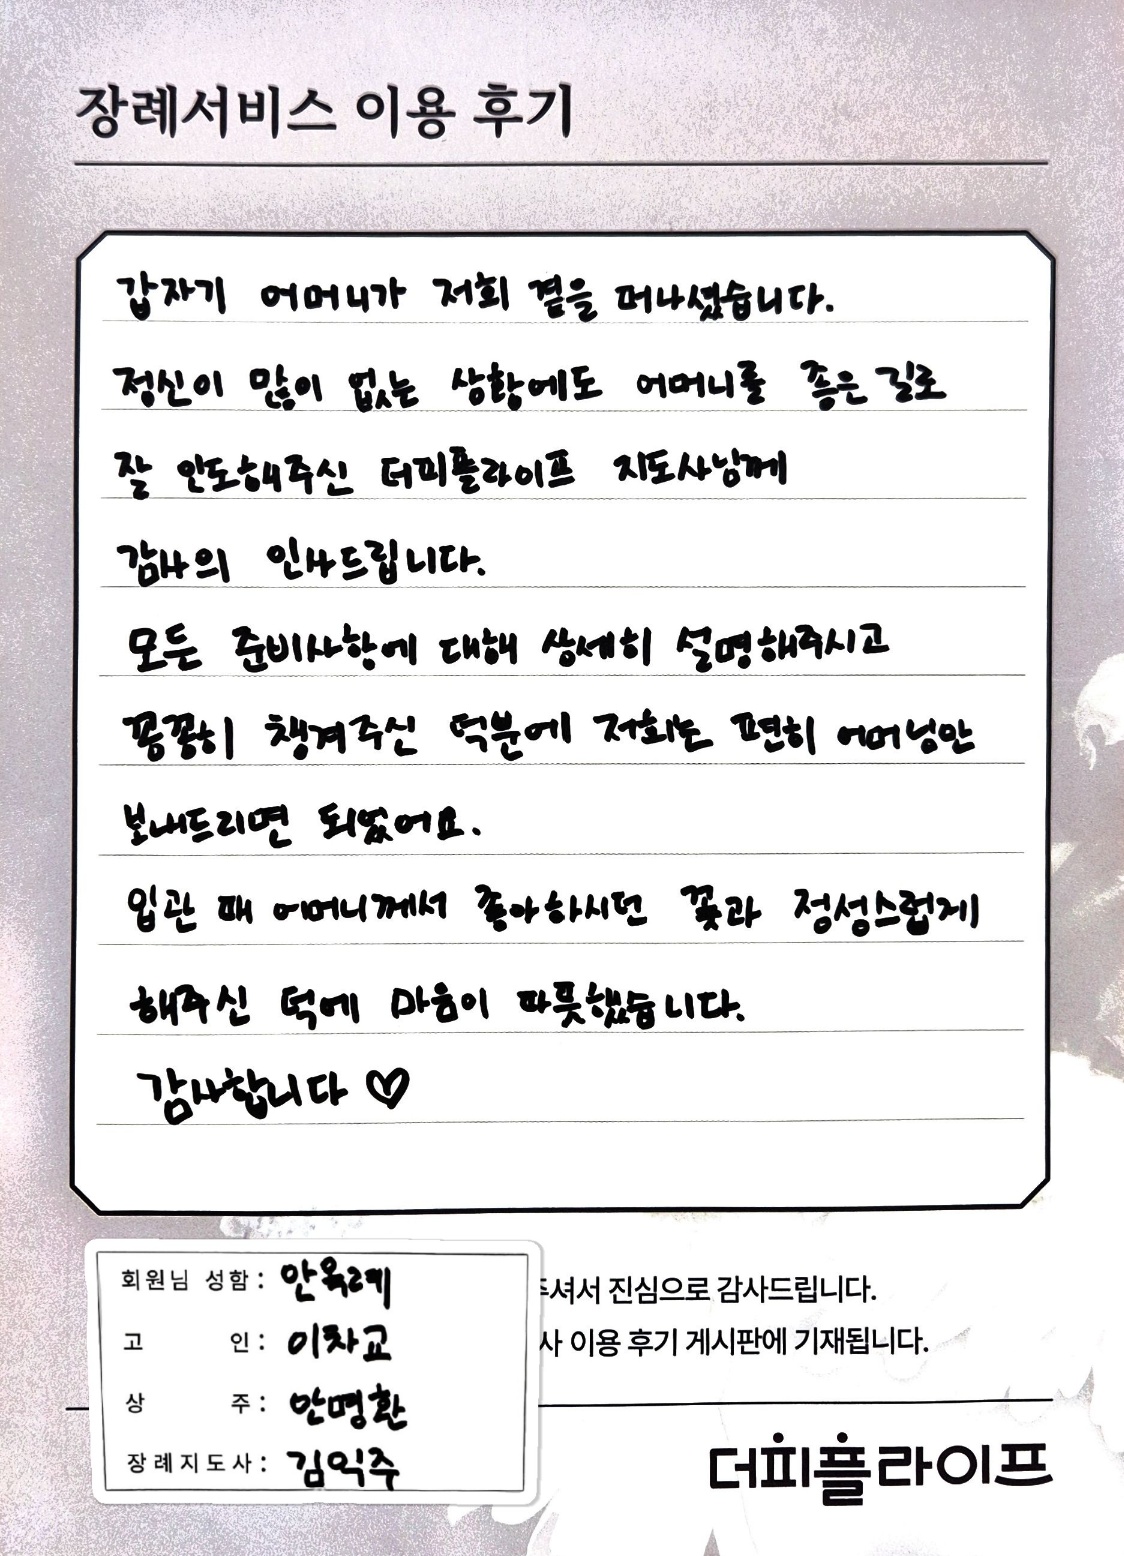 장례서비스 이용 후기
갑자기 어머니가 저희 곁을 떠나셨습니다.
정신이 많이 없는 상황에도 어머니를 좋은 길로
잘 인도해주신 더피플라이프 지도사님께
감사의 인사드립니다.
모든 준비사항에 대해 상세히 설명해주시고
꼼꼼히 챙겨주신 덕분에 저희는 편히 어머님만
보내드리면 되었어요.
입관 때 어머니께서 좋아하시던 꽃과 정성스럽게
해주신 덕에 마음이 따뜻했습니다.
감사합니다 ♡
회원님 성함 : 안옥례
고 인 : 이차교
상 주 : 안명환
장례지도사 : 김익주
주셔서 진심으로 감사드립니다.
사 이용 후기 게시판에 기재됩니다.
더피플라이프